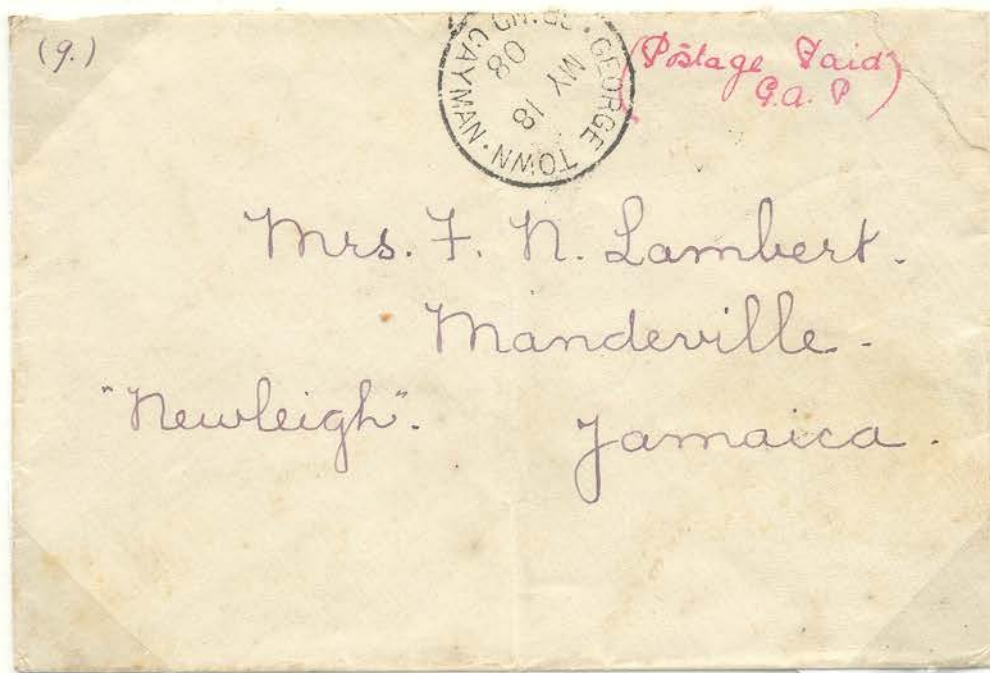 (9.)
GEORGE TOWN · CAYMAN
MY 18
08
(Postage Paid
G.A.P)
Mrs. F. N. Lambert.
Mandeville -
"Newleigh".
Jamaica.